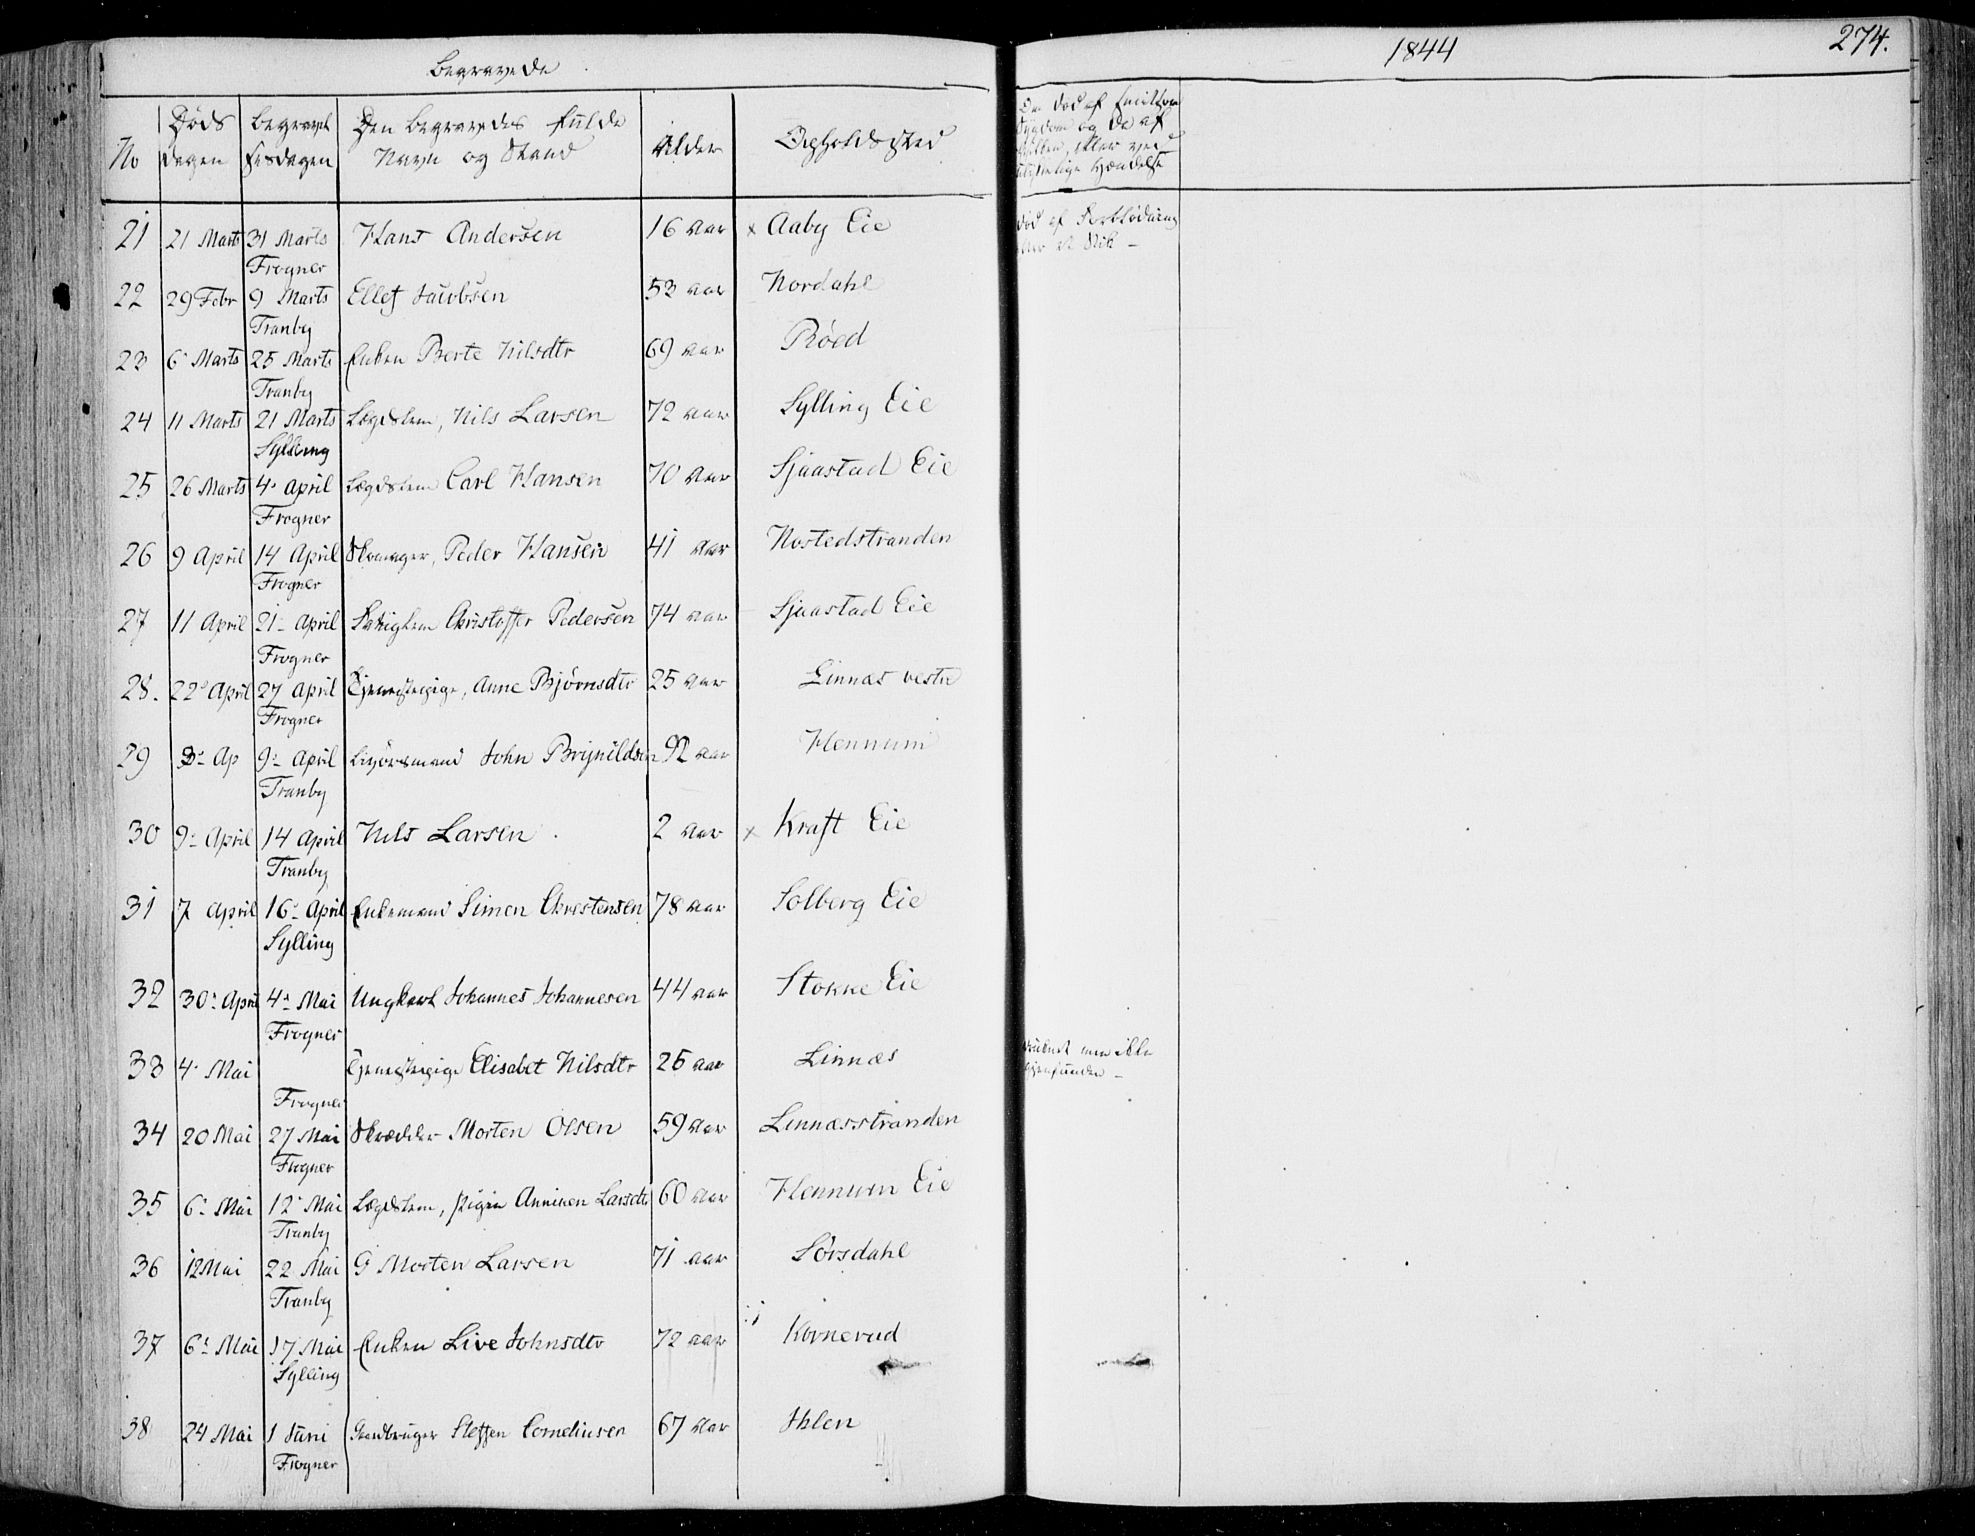 Begravede
1844
274.
No
Døds dagen
Begravel sesdagen
Den Begravedes fulde Navn og Stand
Alder
Opholdssted
Om død af
Sygdom og da af
eller ved
ulykkelige Hændelse
21 21 Marts 31 Marts Hans Andersen 16 Aar x Aaby Eie død af Forblødning
Frogner
22 29 Febr 9 Marts Ellef Jacobsen 53 aar Nordahl
Tranby
23 6 Marts 25 Marts Enken Berte Nilsdtr 69 aar Røed
Tranby
24 11 Marts 21 Marts Lægdslem, Nils Larsen 72 aar Sylling Eie
Sylling
25 26 Marts 4 April Lægdslem Carl Hansen 70 Aar Sjaastad Eie
Frogner
26 9 April 14 April Peder Hansen 41 aar Nostedstranden
Frogner
27 11 April 21 April Christoffer Pedersen 74 aar Sjaastad Eie
Frogner
28. 22 April 27 April Tjenestepige, Anne Bjørnsdtr 25 aar Linnæs vestre
Frogner
29 3 Ap 9 April John Brynildsen 92 aar Hennum
Tranby
30 9 April 14 April Nils Larsen 2 Aar x Kraft Eie
Tranby
31 7 April 16 April Enkemand Simen Christensen 78 aar Solberg Eie
Sylling
32 30 April 4 Mai Ungkarl Johannes Johannesen 44 aar Stokke Eie
Frogner
33 4 Mai Tjenestepige Elisabet Nilsdtr 25 aar Linnæs druknet men ikke
gjenfunden –
Frogner
34 20 Mai 27 Mai Skrædder Morten Olsen 59 Aar Linnæsstranden
Frogner
35 6 Mai 12 Mai Lægdslem, Pigen Anniken Larsdtr 60 aar Hennum Eie
Tranby
36 12 Mai 22 Mai G Morten Larsen 71 aar Sørsdahl
Tranby
37 6 Mai 17 Mai Enken Live Johnsdtr 72 aar Kornerud
Sylling
38 24 Mai 1 Juni Gaardbruger Steffen Corneliusen 67 Aar Ihlen
Frogner